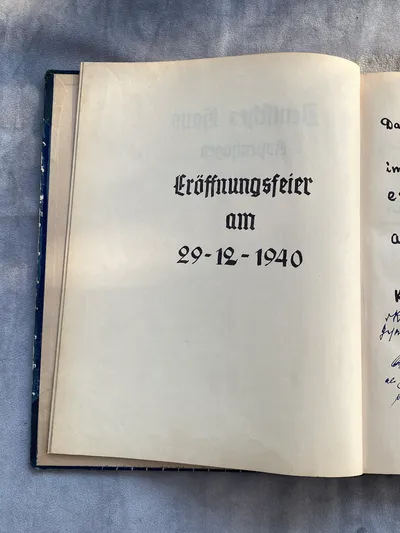 Eröffnungsfeier
am
29-12-1940
Da
im
e
a
K